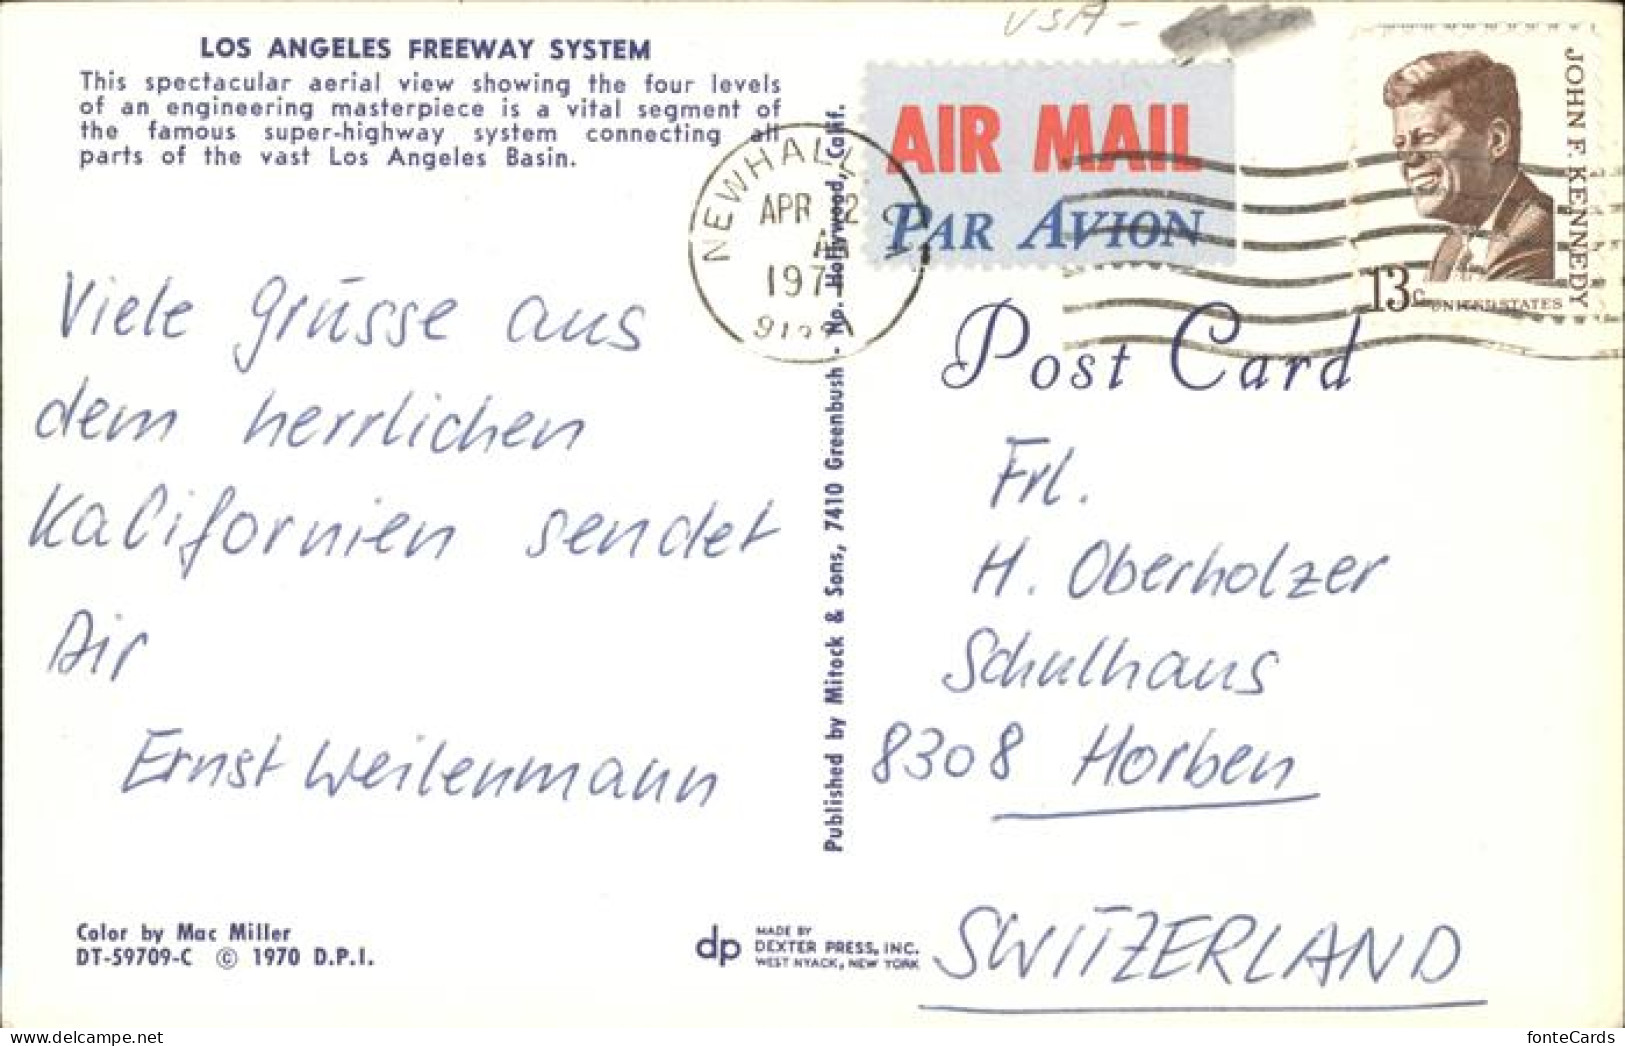 USA -
LOS ANGELES FREEWAY SYSTEM
This spectacular aerial view showing the four levels
of an engineering masterpiece is a vital segment of
the famous super-highway system connecting all
parts of the vast Los Angeles Basin.
Viele Grüsse aus
dem herrlichen
Kalifornien sendet
Dir
Ernst Weilenmann
Color by Mac Miller
DT-59709-C © 1970 D.P.I.
dp
MADE BY
DEXTER PRESS, INC.
WEST NYACK, NEW YORK
Published by Mitock & Sons, 7410 Greenbush - No. Hollywood, Calif.
NEWHALL
APR
197
AIR MAIL
PAR AVION
JOHN F. KENNEDY
13c
UNITED STATES
Post Card
Frl.
H. Oberholzer
Schulhaus
8308 Horben
SWITZERLAND
fonteCards